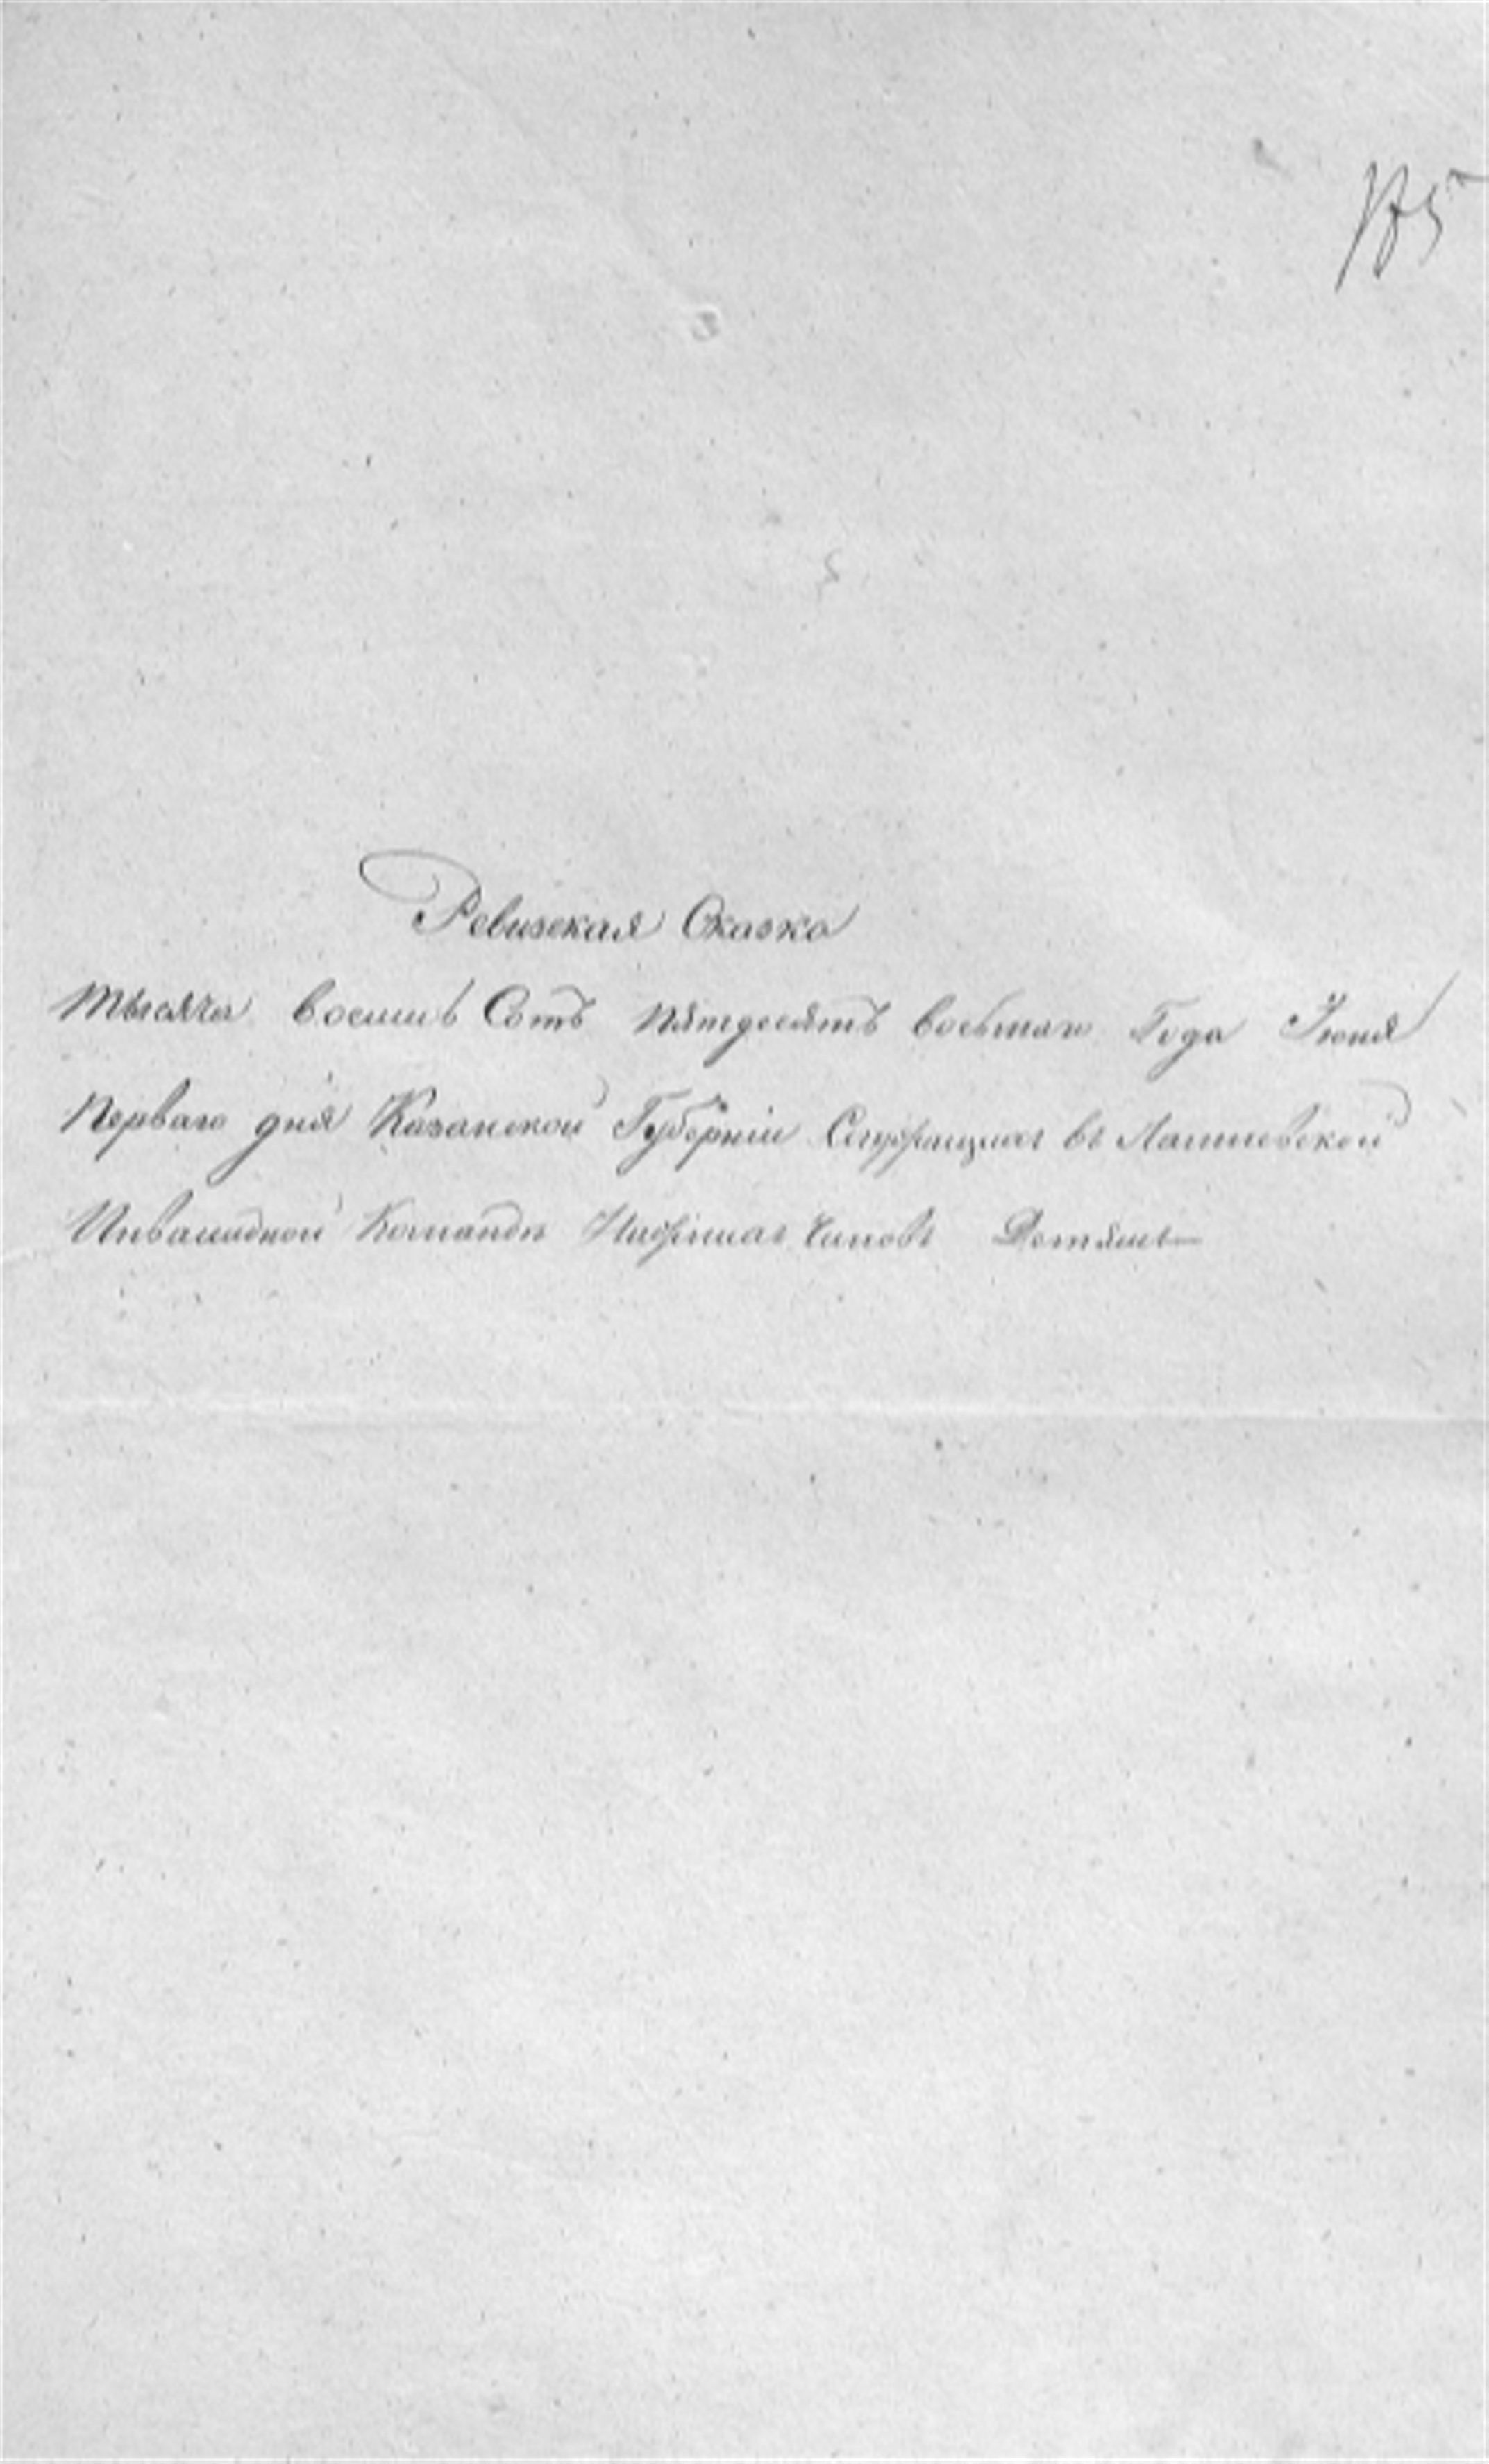 175
Ревизская Сказка
Тысяча восемь Сотъ пятдесятъ восьмаго Года Июня
Перваго дня Казанской Губерніи Служащихъ въ Лаишевской
Инвалидной Команде Нижнихъ Чиновъ Детямъ